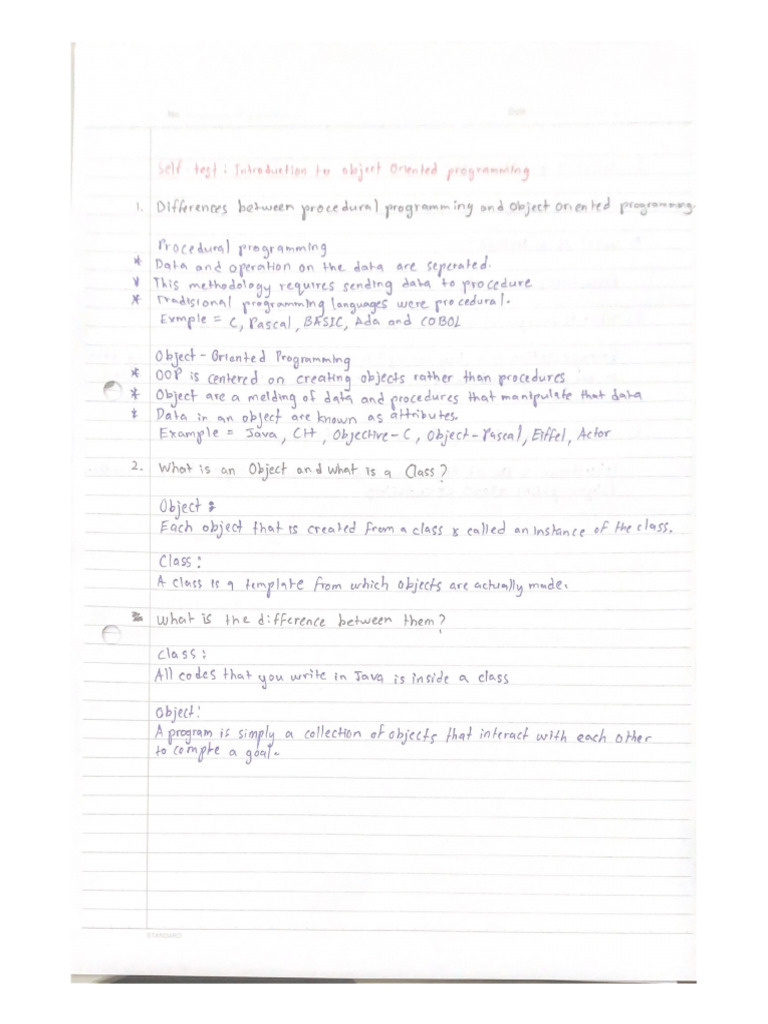 No.
Date
Self test: Introduction to object Oriented programming
1. Differences between procedural programming and Object Oriented programming.
Procedural programming
* Data and operation on the data are seperated.
* This methodology requires sending data to procedure
* Tradisional programming languages were procedural.
Exmple = C, Pascal, BASIC, Ada and COBOL
Object-Oriented Programming
* OOP is centered on creating objects rather than procedures
* Object are a melding of data and procedures that manipulate that data
* Data in an object are known as attributes.
Example = Java, C++, Objective-C, Object-Pascal, Eiffel, Actor
2. What is an Object and what is a Class?
Object:
Each object that is created from a class is called an instance of the class.
Class:
A class is a template from which objects are actually made.
What is the difference between them?
Class:
All codes that you write in Java is inside a class
Object:
A program is simply a collection of objects that interact with each other
to compte a goal.
STANDARD